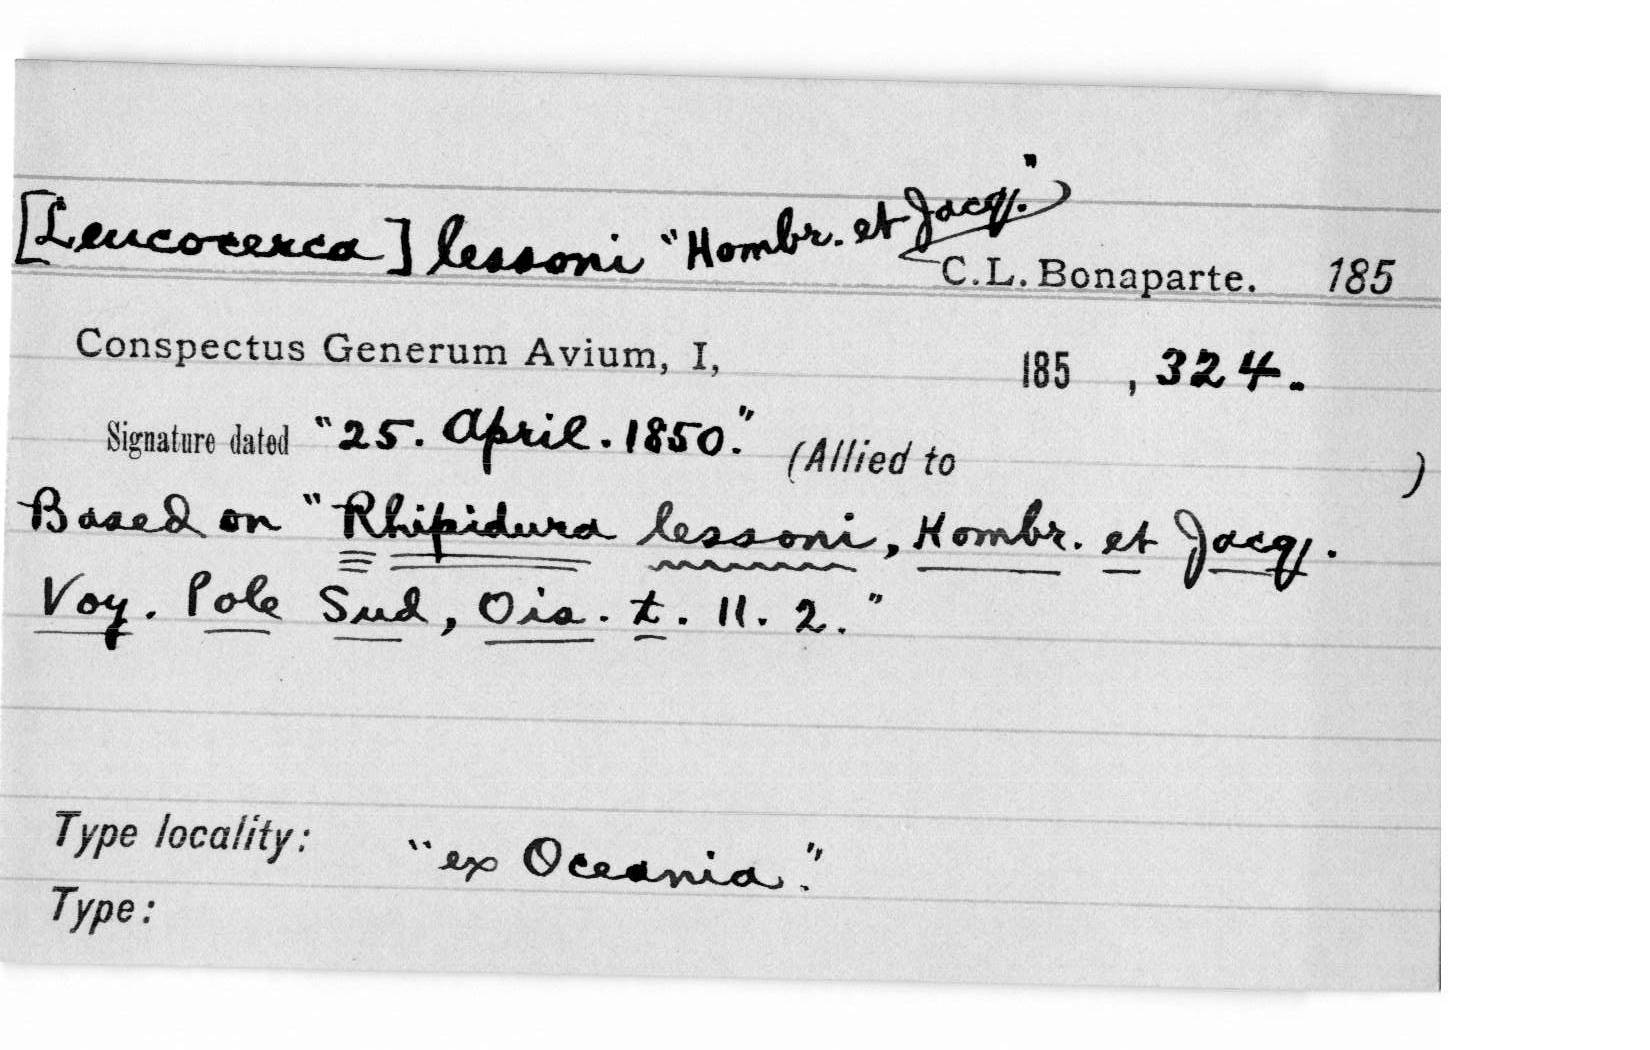 [Leucocerca] lessoni "Hombr. et Jacq."
C.L. Bonaparte. 185
Conspectus Generum Avium, I, 185 , 324.
Signature dated "25. April. 1850." (Allied to )
Based on "Rhipidura lessoni, Hombr. et Jacq.
Voy. Pole Sud, Ois. t. 11. 2."
Type locality: "ex Oceania."
Type: